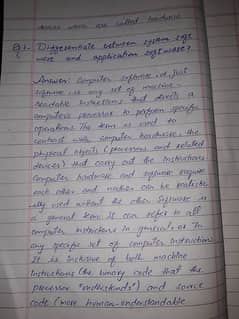 which are called hardware
Q.1- Differentiate between system soft
ware and application software?
Answer: Computer software, or just
software is any set of machine-
readable instructions that directs a
computer's processor to perform specific
operations. The term is used to
contrast with computer hardware, the
physical objects (processor and related
devices) that carry out the instructions.
Computer hardware and software require
each other and neither can be realistic-
ally used without the other. Software is
a general term. It can refer to all
computer instructions in general or to
any specific set of computer instructions.
It is inclusive of both machine
instructions (the binary code that the
processor "understands") and source
code (more human-understandable